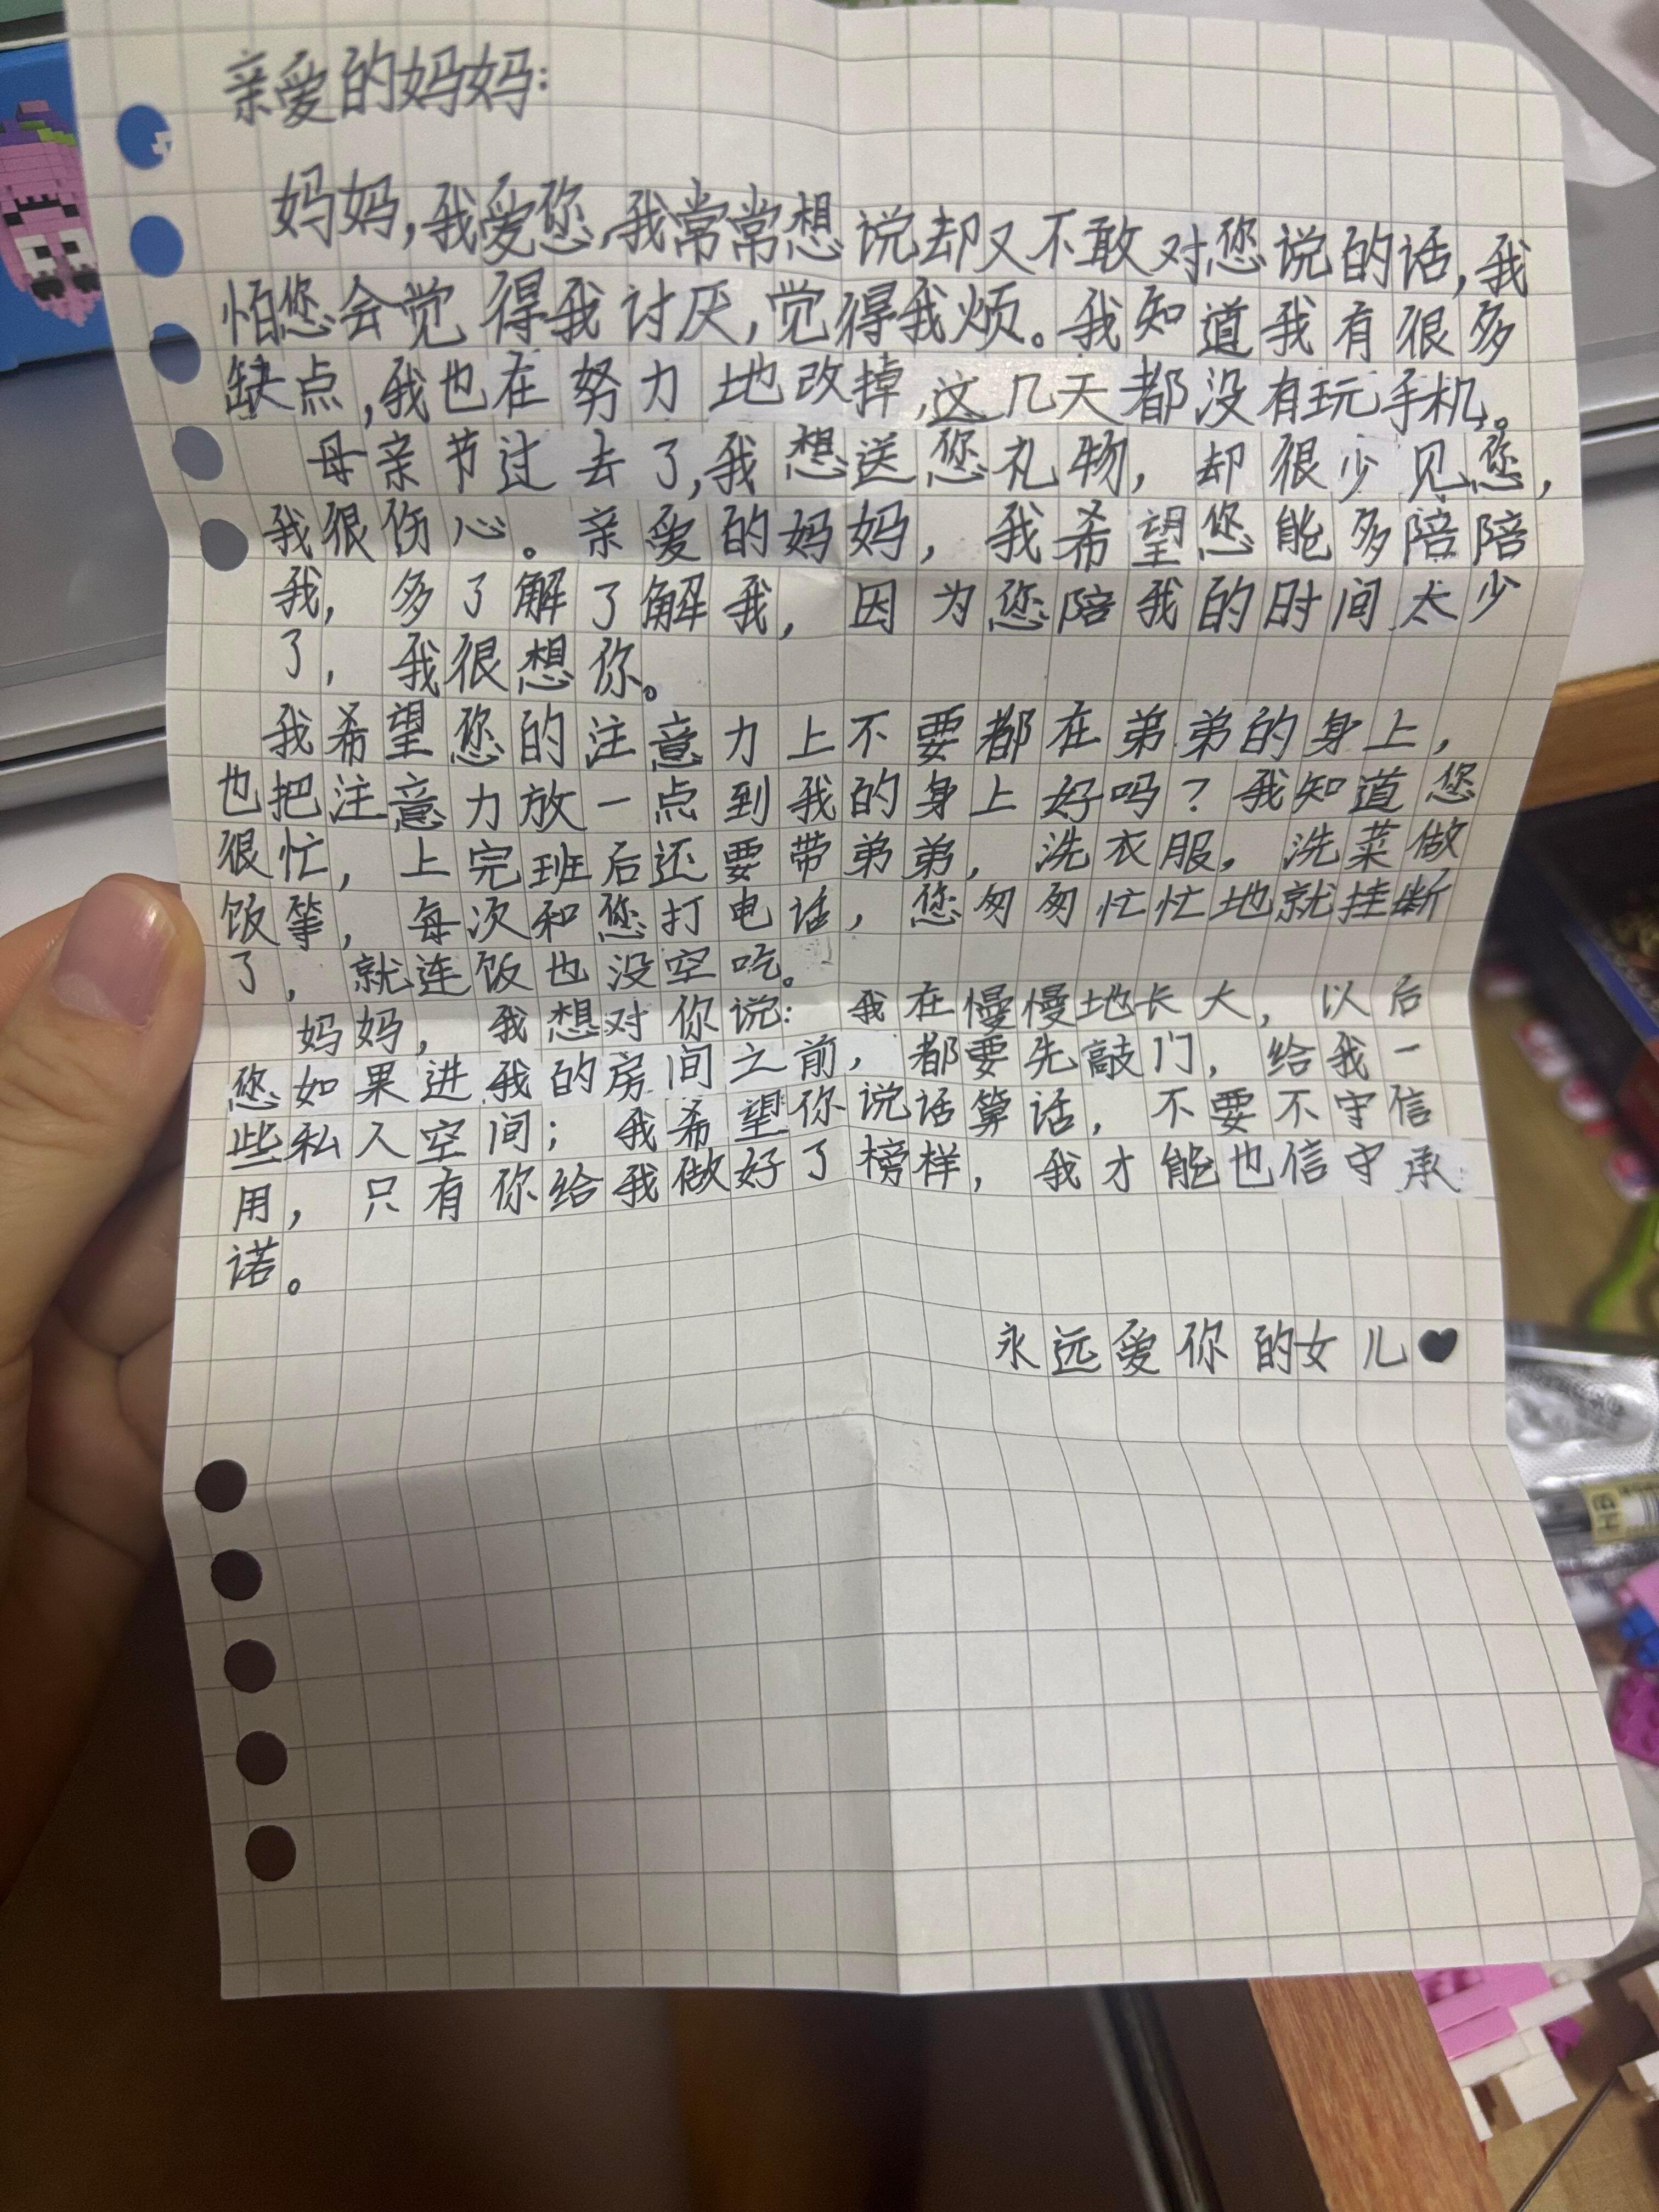 亲爱的妈妈:
妈妈,我爱您,我常常想说却又不敢对您说的话,我
怕您会觉得我讨厌,觉得我烦。我知道我有很多
缺点,我也在努力地改掉,这几天都没有玩手机。
母亲节过去了,我想送您礼物,却很少见您,
我很伤心。亲爱的妈妈,我希望您能多陪陪
我,多了解了解我,因为您陪我的时间太少
了,我很想你。
我希望您的注意力上不要都在弟弟的身上,
也把注意力放一点到我的身上好吗?我知道您
很忙,上完班后还要带弟弟,洗衣服,洗菜做
饭等,每次和您打电话,您匆匆忙忙地就挂断
了,就连饭也没空吃。
妈妈,我想对你说:我在慢慢地长大,以后
您如果进我的房间之前,都要先敲门,给我一
些私人空间;我希望你说话算话,不要不守信
用,只有你给我做好了榜样,我才能也信守承
诺。
永远爱你的女儿♥
HB